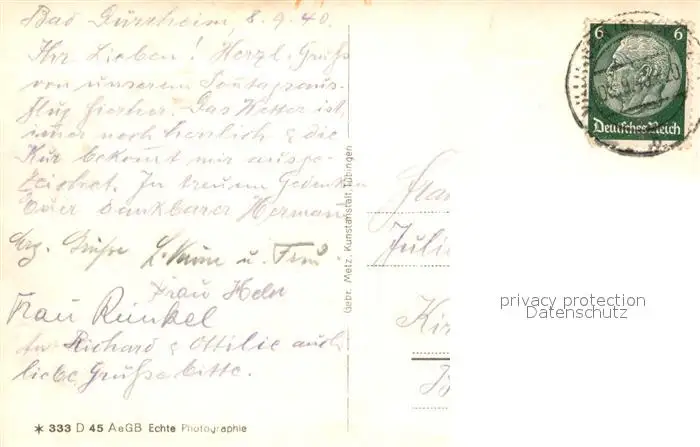 Bad Dürrheim, 8.9.40.
Ihr Lieben! Herzl. Grüße
von unserem Sonntagsaus-
flug hierher. Das Wetter ist
immer noch herrlich & die
Kur bekommt mir ausge-
zeichnet. In treuem Gedenken
Euer dankbarer Hermann
Hrz. Grüße u. Frau
Frau
Frau Runkel
An Richard & Ottilie auch
liebe Grüße bitte.
✶ 333 D 45 AeGB Echte Photographie
Gebr. Metz, Kunstanstalt, Tübingen
6 6
Deutsches Reich
Julie
privacy protection
Datenschutz